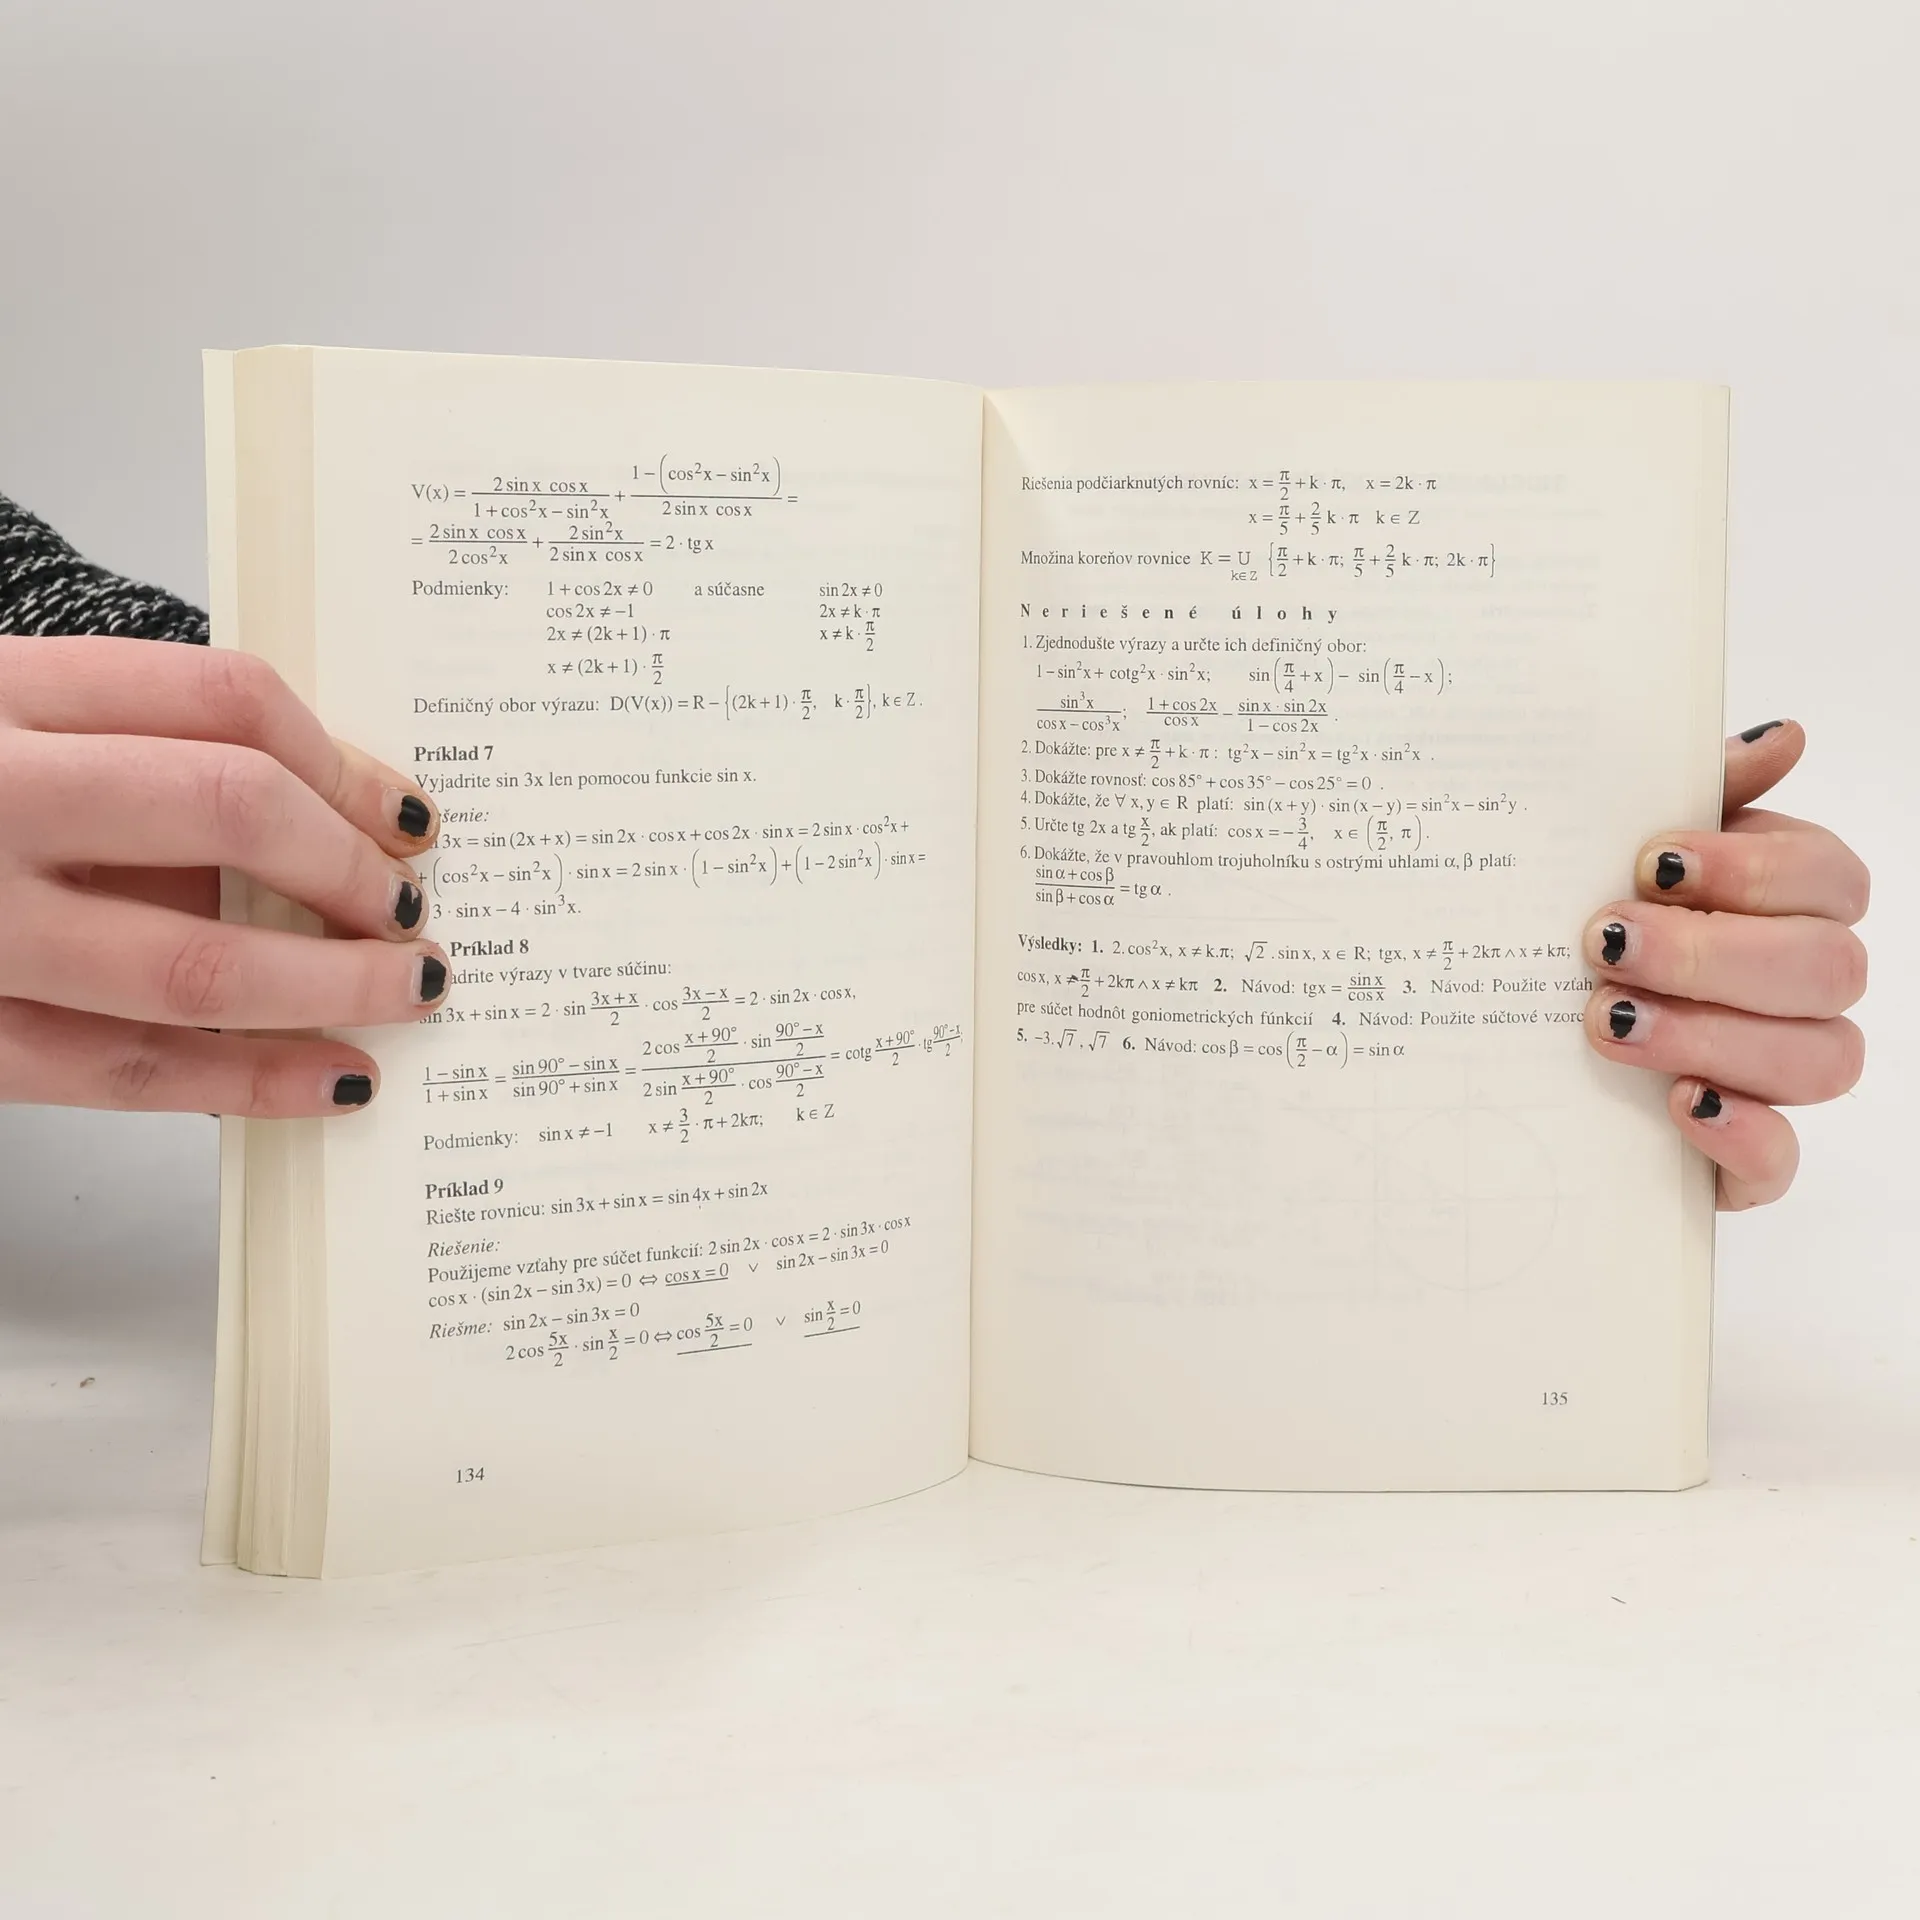 V(x) = 2 sin x cos x / (1 + cos²x – sin²x) + (1 – (cos²x – sin²x)) / (2 sin x cos x) =
= 2 sin x cos x / 2 cos²x + 2 sin²x / (2 sin x cos x) = 2 · tg x
Podmienky: 1 + cos 2x ≠ 0 a súčasne sin 2x ≠ 0
cos 2x ≠ –1 2x ≠ k · π
2x ≠ (2k + 1) · π x ≠ k · π/2
x ≠ (2k + 1) · π/2
Definičný obor výrazu: D(V(x)) = R – {(2k + 1) · π/2, k · π/2}, k ∈ Z .
Príklad 7
Vyjadrite sin 3x len pomocou funkcie sin x.
šenie:
3x = sin (2x + x) = sin 2x · cos x + cos 2x · sin x = 2 sin x · cos²x +
+ (cos²x – sin²x) · sin x = 2 sin x · (1 – sin²x) + (1 – 2 sin²x) · sin x =
3 · sin x – 4 · sin³x.
Príklad 8
adrite výrazy v tvare súčinu:
sin 3x + sin x = 2 · sin (3x + x)/2 · cos (3x – x)/2 = 2 · sin 2x · cos x,
(1 – sin x)/(1 + sin x) = (sin 90° – sin x)/(sin 90° + sin x) = (2 cos (x + 90°)/2 · sin (90° – x)/2)/(2 sin (x + 90°)/2 · cos (90° – x)/2) = cotg (x + 90°)/2 · tg (90° – x)/2;
Podmienky: sin x ≠ –1 x ≠ 3/2 · π + 2kπ; k ∈ Z
Príklad 9
Riešte rovnicu: sin 3x + sin x = sin 4x + sin 2x
Riešenie:
Použijeme vzťahy pre súčet funkcií: 2 sin 2x · cos x = 2 · sin 3x · cos x
cos x · (sin 2x – sin 3x) = 0 ⇔ cos x = 0 ∨ sin 2x – sin 3x = 0
Riešme: sin 2x – sin 3x = 0
2 cos 5x/2 · sin x/2 = 0 ⇔ cos 5x/2 = 0 ∨ sin x/2 = 0
134
Riešenia podčiarknutých rovníc: x = π/2 + k · π, x = 2k · π
x = π/5 + 2/5 k · π k ∈ Z
Množina koreňov rovnice K = U k∈Z {π/2 + k · π; π/5 + 2/5 k · π; 2k · π}
Neriešené úlohy
1. Zjednodušte výrazy a určte ich definičný obor:
1 – sin²x + cotg²x · sin²x; sin (π/4 + x) – sin (π/4 – x);
sin³x / (cos x – cos³x); (1 + cos 2x)/cos x – (sin x · sin 2x)/(1 – cos 2x) .
2. Dokážte: pre x ≠ π/2 + k · π : tg²x – sin²x = tg²x · sin²x .
3. Dokážte rovnosť: cos 85° + cos 35° – cos 25° = 0 .
4. Dokážte, že ∀ x, y ∈ R platí: sin (x + y) · sin (x – y) = sin²x – sin²y .
5. Určte tg 2x a tg x/2, ak platí: cos x = – 3/4, x ∈ (π/2, π) .
6. Dokážte, že v pravouhlom trojuholníku s ostrými uhlami α, β platí:
(sin α + cos β)/(sin β + cos α) = tg α .
Výsledky: 1. 2. cos²x, x ≠ k.π; √2 . sin x, x ∈ R; tgx, x ≠ π/2 + 2kπ ∧ x ≠ kπ;
cos x, x ≠ π/2 + 2kπ ∧ x ≠ kπ 2. Návod: tgx = sin x/cos x 3. Návod: Použite vzťah
pre súčet hodnôt goniometrických fúnkcií 4. Návod: Použite súčtové vzorc
5. –3.√7 , √7 6. Návod: cos β = cos (π/2 – α) = sin α
135